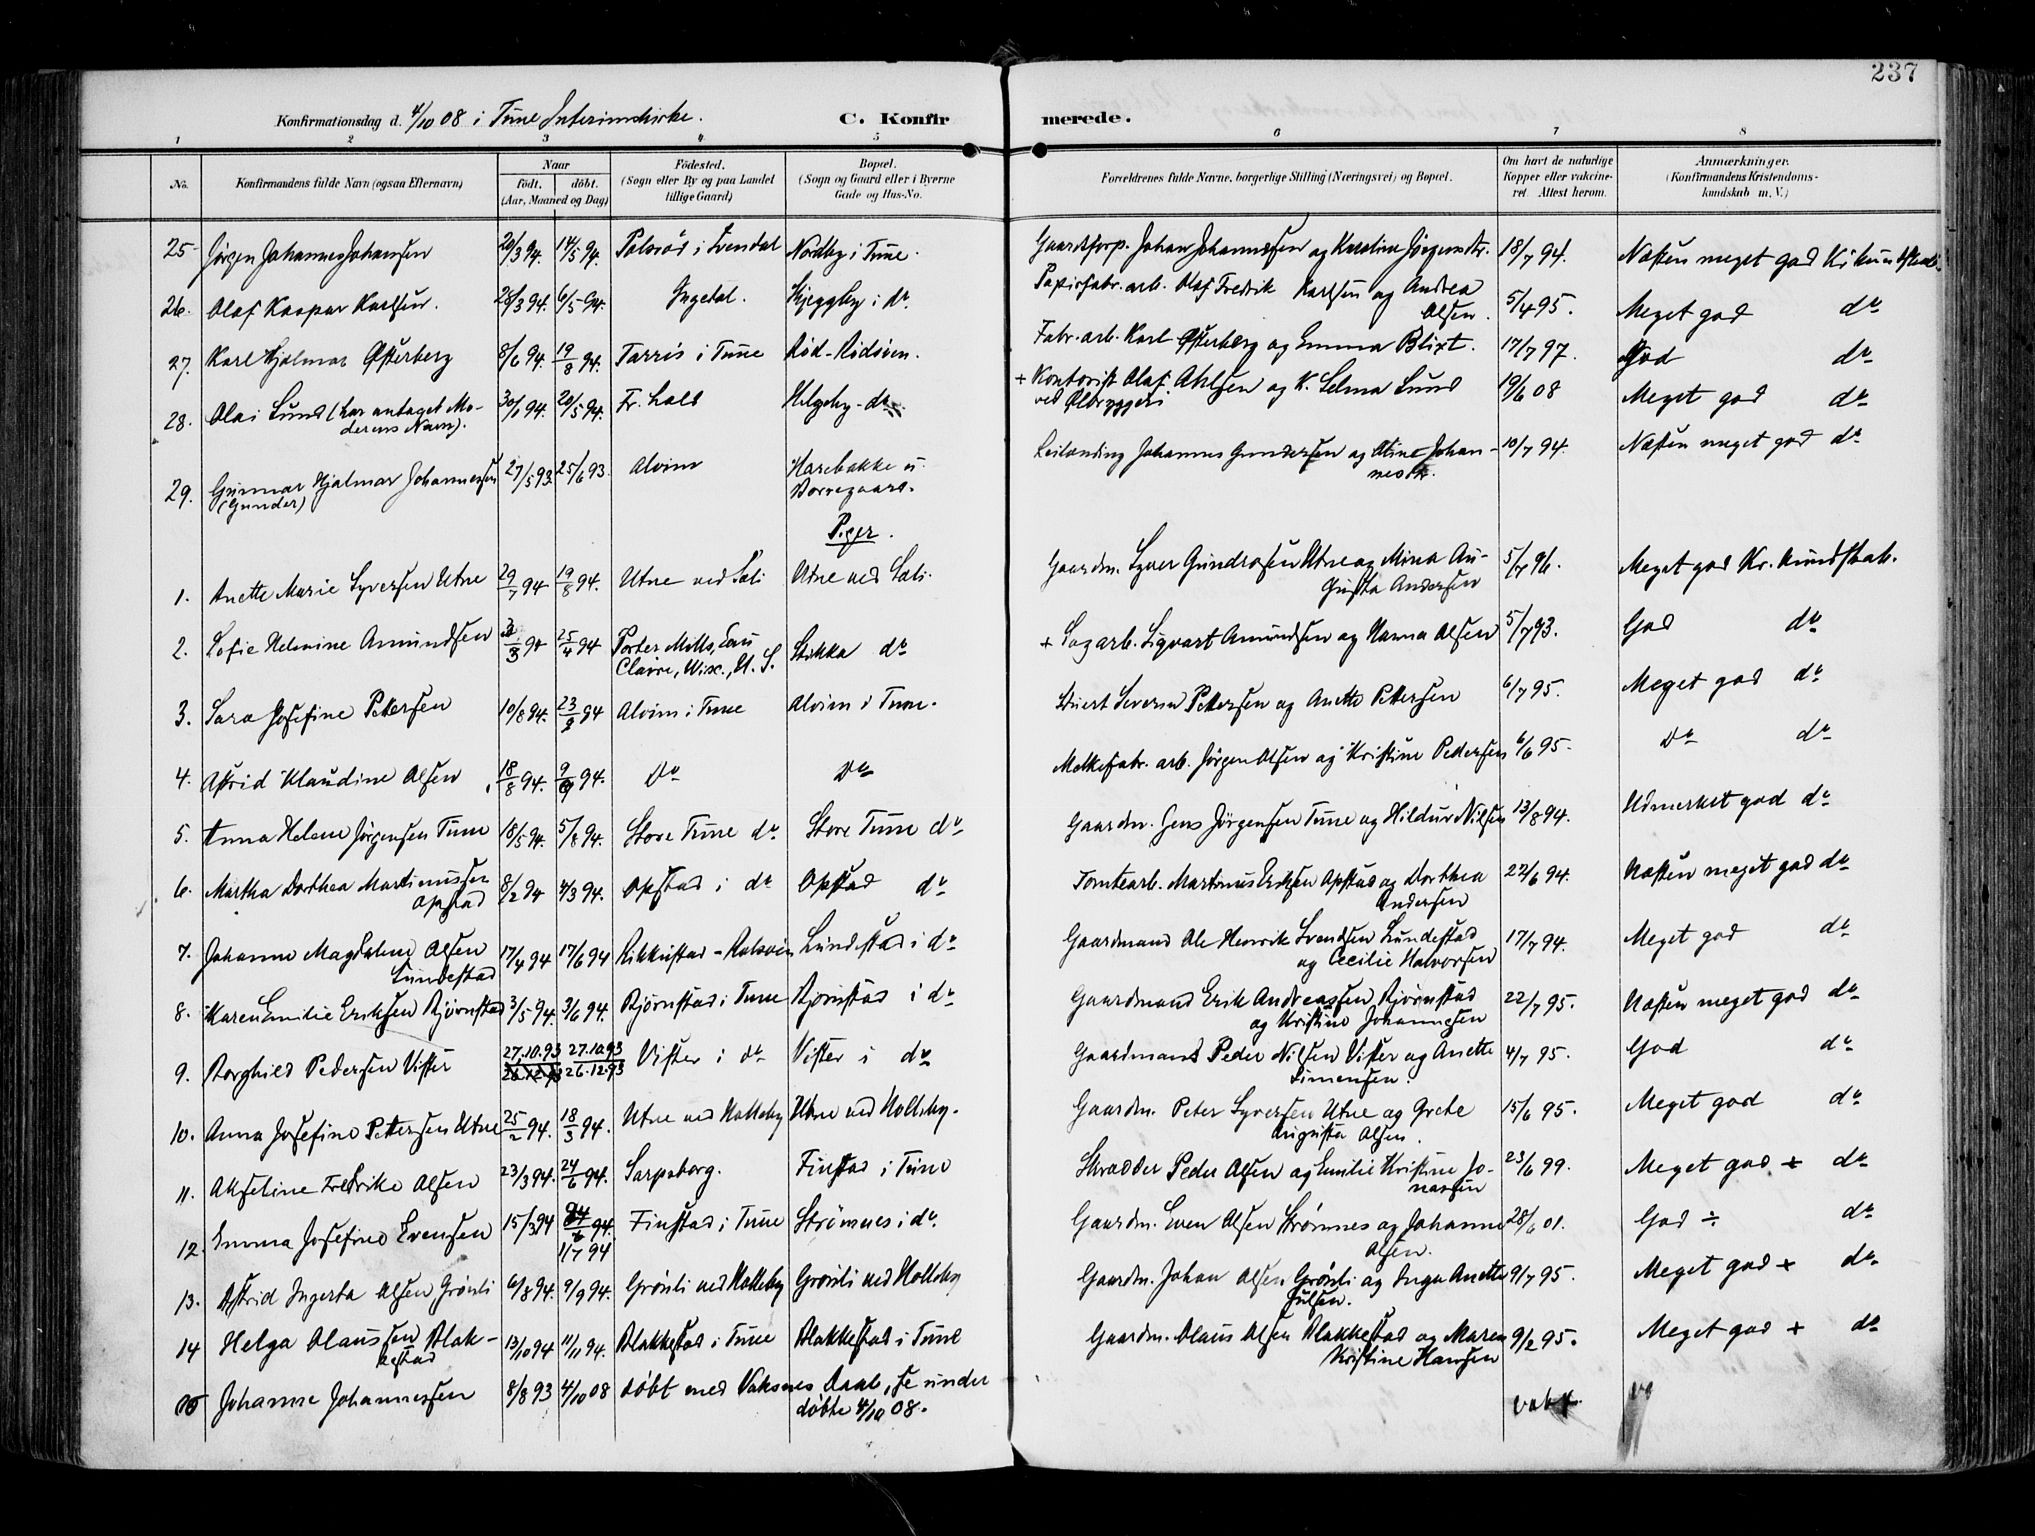 237
Konfirmationsdag d. 4/10 08 i Tune Interimskirke.
C. Konfirmerede.
1 2 3 4 5 6 7 8
No.
Konfirmandens fulde Navn (ogsaa Efternavn)
Naar
født. døbt.
(Aar, Maaned og Dag)
Fødested.
(Sogn eller By og paa Landet
tillige Gaard)
Bopæl.
(Sogn og Gaard eller i Byerne
Gade og Hus-No.
Forældrenes fulde Navne, borgerlige Stilling (Næringsvei) og Bopæl.
Om havt de naturlige
Kopper eller vakcine-
ret. Attest herom.
Anmærkninger.
(Konfirmandens Kristendoms-
kundskab m. V.)
25 Jørgen Johannes Johansen 20/3 94. 14/5 94. i Svendal Nordby i Tune. Gaardsforp. Johan Johannessen og Karoline Jørgensdtr. 18/7 94. Næsten meget god
26. Olaf Kaspar Karlsen. 28/3 94. 6/5 94. Ingedal. i do Papirfabr. arb. Olaf Fredrik Karlsen og Andrea
Olsen. 5/4 95. Meget god do
27. Karl Hjalmar Østerberg 8/6 94. 19/8 94. Tarris i Tune Rød - Rødsven. Fabr. arb. Karl Østerberg og Emma Blixt. 17/7 97. God do
28. Olai Lund (har antaget Mo-
derens Navn). 30/1 94. 20/5 94. Fr. hald Helgeby - do + Kontorist Olaf Ahlsen og K. Selma Lund
ved Ølbryggeri 19/6 08 Meget god do
29. Gunnar Hjalmar Johannessen
(Gunder) 27/5 93. 25/6 93. Alvim Harebakke u.
Borregaard. Leilending Johannes Gundersen og Oline Johan-
nesdtr. 10/7 94. Næsten meget god do
Piger.
1. Anette Marie Syversen Utne 29/7 94 19/8 94. Utne ved Soli Utne ved Soli. Gaardm. Syver Gundersen Utne og Mina Au-
gusta Andersen 5/7 96. Meget god Kr. kundskab.
2. Sofie Helmine Amundsen 2/3 94 25/4 94 Porter Mills, Eau
Claire, Wisc., U. S. Stikka do + Sagarb. Sigvart Amundsen og Hanna Olsen 5/7 93. God do
3. Sara Josefine Pettersen 10/8 94. 23/9 94 Alvim i Tune Alvim i Tune. Stuert Severin Pettersen og Anette Pettersen 6/7 95. Meget god do
4. Astrid Klaudine Olsen 18/8 94. 9/9 94. Do Do Melkefabr. arb. Jørgen Olsen og Kristine Pedersen 6/6 95. Do do
5. Anna Helene Jørgensen Tune 18/5 94. 5/8 94. Store Tune do Store Tune do Gaardm. Jens Jørgensen Tune og Hildur Nilsen 13/8 94. Udmerket god do
6. Martha Dorthea Martinussen
Opstad 8/2 94 4/3 94. Opstad i do Opstad do Tomtearb. Martinus Eriksen Opstad og Dorthea
Andersen 22/6 94. Næsten meget god do
7. Johanne Magdalene Olsen
Lundestad 17/4 94 17/6 94 Rikkestad - Rolsøien Lundestad i do Gaardmand Ole Henrik Svendsen Lundestad
og Cecilie Halvorsen 17/7 94. Meget god do
8. Karen Emilie Eriksen Bjørnstad 3/5 94. 3/6 94. Bjørnstad i Tune Bjørnstad i do Gaardmand Erik Andreassen Bjørnstad
og Kristine Johannesen 22/7 95. Næsten meget god do
9. Borghild Pedersen Vister 27.10.93 27.10.93
26.12.93 26.12.93 Vister i do Vister i do Gaardmand Peder Nilsen Vister og Anette
Simensen. 4/7 95. God do
10. Anna Josefine Pettersen Utne 25/2 94. 18/3 94. Utne ved Holleby Utne ved Holleby. Gaardm. Peter Syversen Utne og Grete
Augusta Olsen. 15/6 95. Meget god do
11. Akseline Fredrike Olsen 23/3 94. 24/6 94. Sarpsborg. Finstad i Tune Skrædder Peder Olsen og Emilie Kristine Jo-
nassen 23/6 99. Meget god + do
12. Emma Josefine Evensen 15/3 94 24/6 94.
1/7 94 Finstad i Tune Strømnes i do. Gaardm. Even Olsen Strømnes og Johanne
Olsen. 28/6 01. God ÷ do
13. Astrid Ingerta Olsen Grønli 6/8 94. 9/9 94. Grønli ved Holleby Grønli ved Holleby Gaardm. Johan Olsen Grønli og Inga Anette
Julsen. 9/7 95. Meget god + do
14 Helga Olaussen Blak-
kestad 13/10 94 11/11 94. Blakkestad i Tune Blakkestad i Tune Gaardm. Olaus Olsen Blakkestad og Maren
Kristine Hansen 9/2 95. Meget god + do
15 Johanne Johannessen 8/8 93 4/10 08 døbt med Voksnes Daab, se under
døbte 4/10 08.